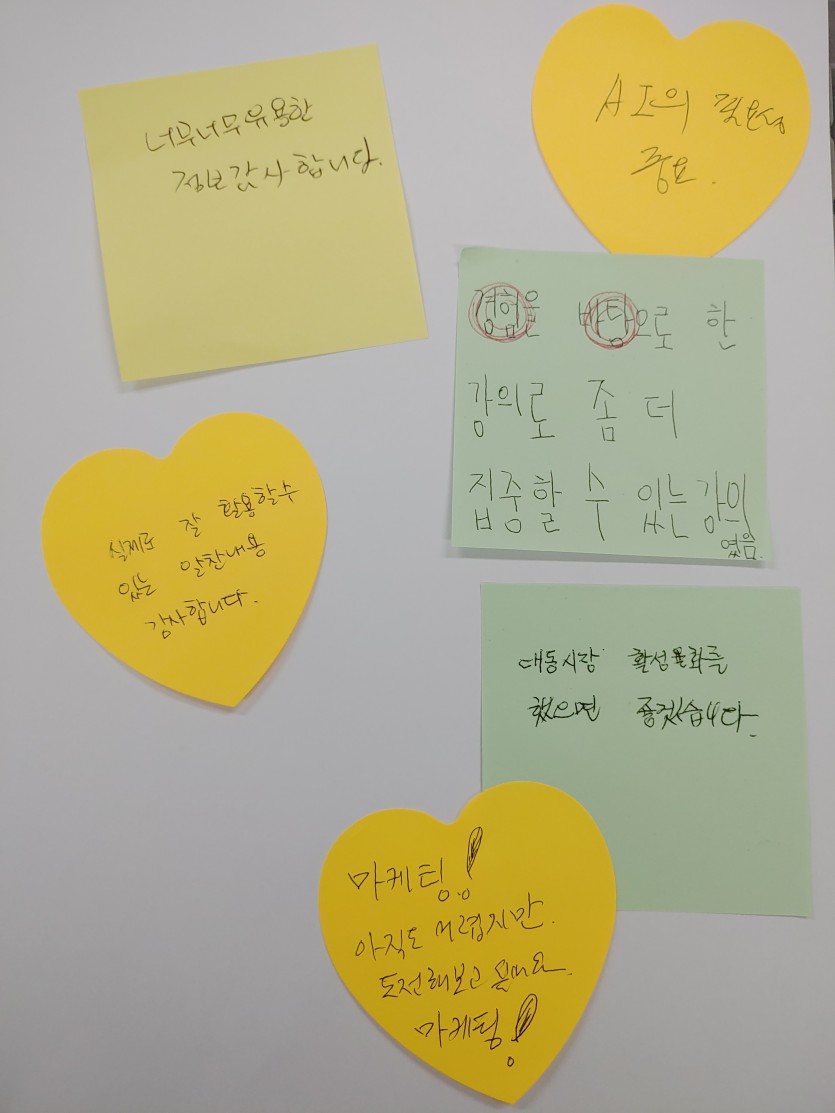 너무너무유용한
정보감사합니다.
AI의 필요성
중요.
경험을 바탕으로 한
강의로 좀 더
집중할 수 있는 강의
였음.
실제로 잘 활용할수
있는 알찬내용
감사합니다.
대동시장 활성화를
했으면 좋겠습니다.
마케팅!
아직도 어렵지만.
도전해보고 싶네요.
마케팅!